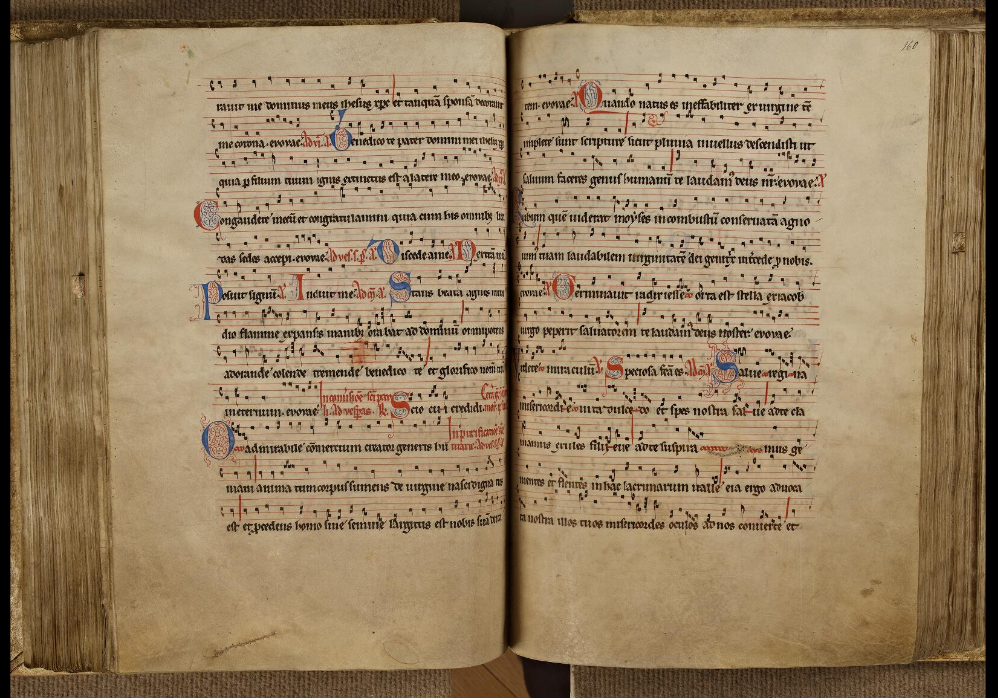 rauit me dominus meus ihesus xpc et tanquā sponsā decorauit
me corona. evovae. Benedico te pater domini mei ihesu
quia p filium tuum ignis extinctus est a latere meo. evovae.
Congaudete mecū et congratulamini quia cum his omnibȝ lu
cidas sedes accepi. evovae. Ad vesp. Discede a me.
Posuit signū. A. Induit me. Ad m̄. A. Stans beata agnes in
dio flamme expansis manibȝ orabat ad dominū omnipotens
adorande colende tremende benedico te et glorifico nomē
meternum. evovae. In conuersione sc̄i pau
li. Ad vesperas. R. Scio cui credidi.
In purificatione
O admirabile cōmercium creator generis hūi
mani animatum corpus sumens de uirgine nasci dignatus
est et pcedens homo sine semine largitus est nobis suā deita
160
tem. evovae. Quando natus es ineffabiliter ex uirgine tc̄
implete sunt scripture sicut pluuia in uellus descendisti ut
saluum faceres genus humanū te laudam deus nr̄. evovae. A
Rubum quē uiderat moyses incombustū conseruatā agno
uim tuam laudabilem uirginitatē dei genitx intcede p nobis.
evovae. Germinauit radix iesse orta est stella ex iacob
uirgo peperit saluatorem te laudam deus noster evovae.
mira culū. A. Speciosa fc̄a es. Ad m̄. A. Salue regina
misericordie uita dulcedo et spes nostra salue ad te cla
mamus exules filii eue ad te suspira mus ge
mentes et flentes in hac lacrimarum ualle eia ergo aduoca
ta nostra illos tuos misericordes oculos ad nos conuerte et